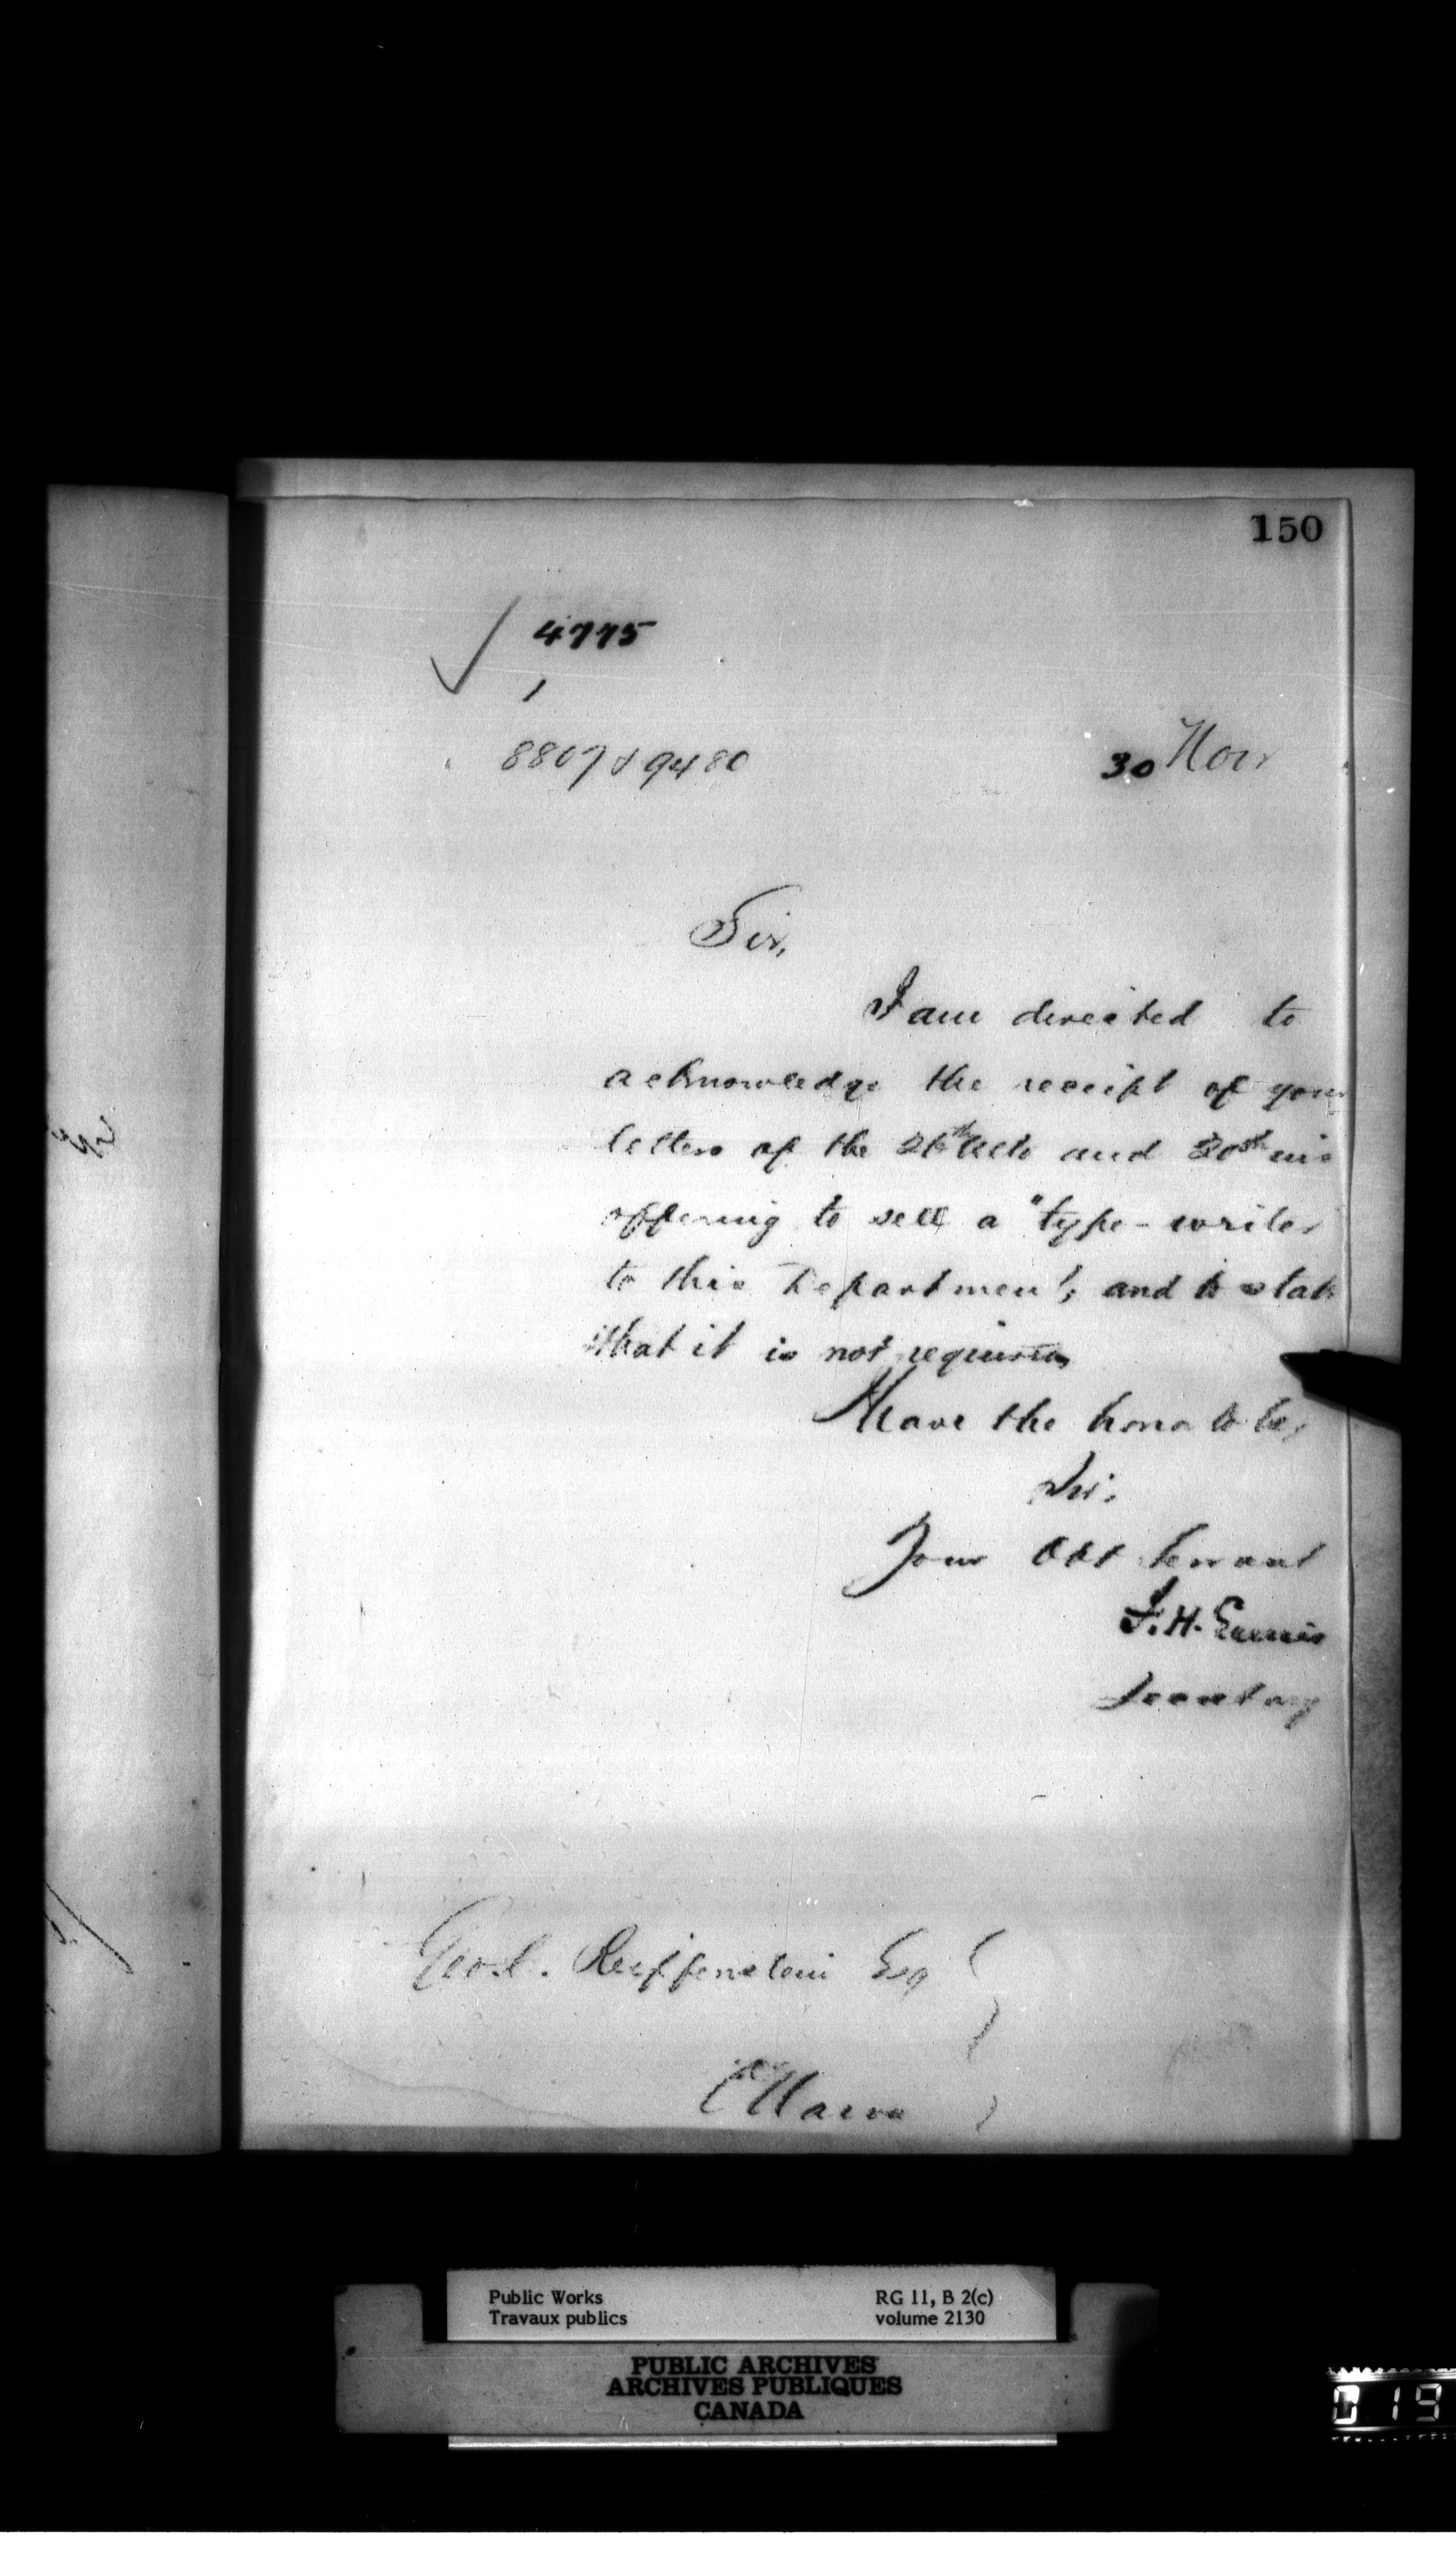 150
4775
1
8807 & 9480
30 Nov
Sir,
I am directed to
acknowledge the receipt of your
letters of the 26th Ulto and 20th ins
offering to sell a "type-writer
to this Department, and to state
that it is not required
I have the honor to be,
Sir.
Your Obt Servant
F. H. Ennis
Secretary
Reiffenstein Esq
Ottawa
Public Works
Travaux publics
RG 11, B 2(c)
volume 2130
PUBLIC ARCHIVES
ARCHIVES PUBLIQUES
CANADA
019